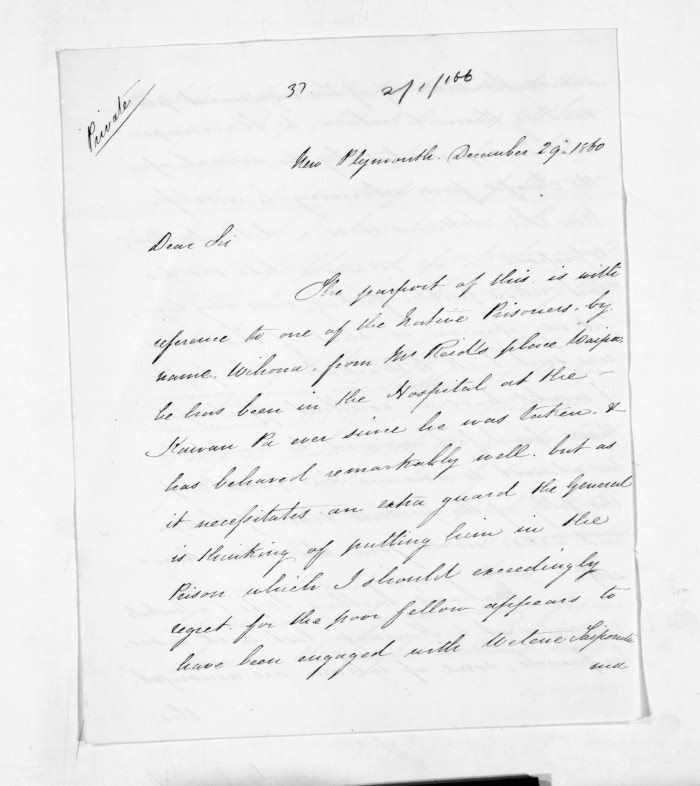 Private
37
2/1/166
New Plymouth. December 29th 1860
Dear Sir
The purport of this is with
reference to one of the Native Prisoners. by
name. Wihona. from Mr Reid's place Waipa.
he has been in the Hospital at the -
Kawau Pa ever since he was taken. &
has behaved remarkably well. but as
it necessitates an extra guard the General
is thinking of putting him in the
Prison which I should exceedingly
regret. for the poor fellow appears to
have been engaged with Wetene Taiporutu
and